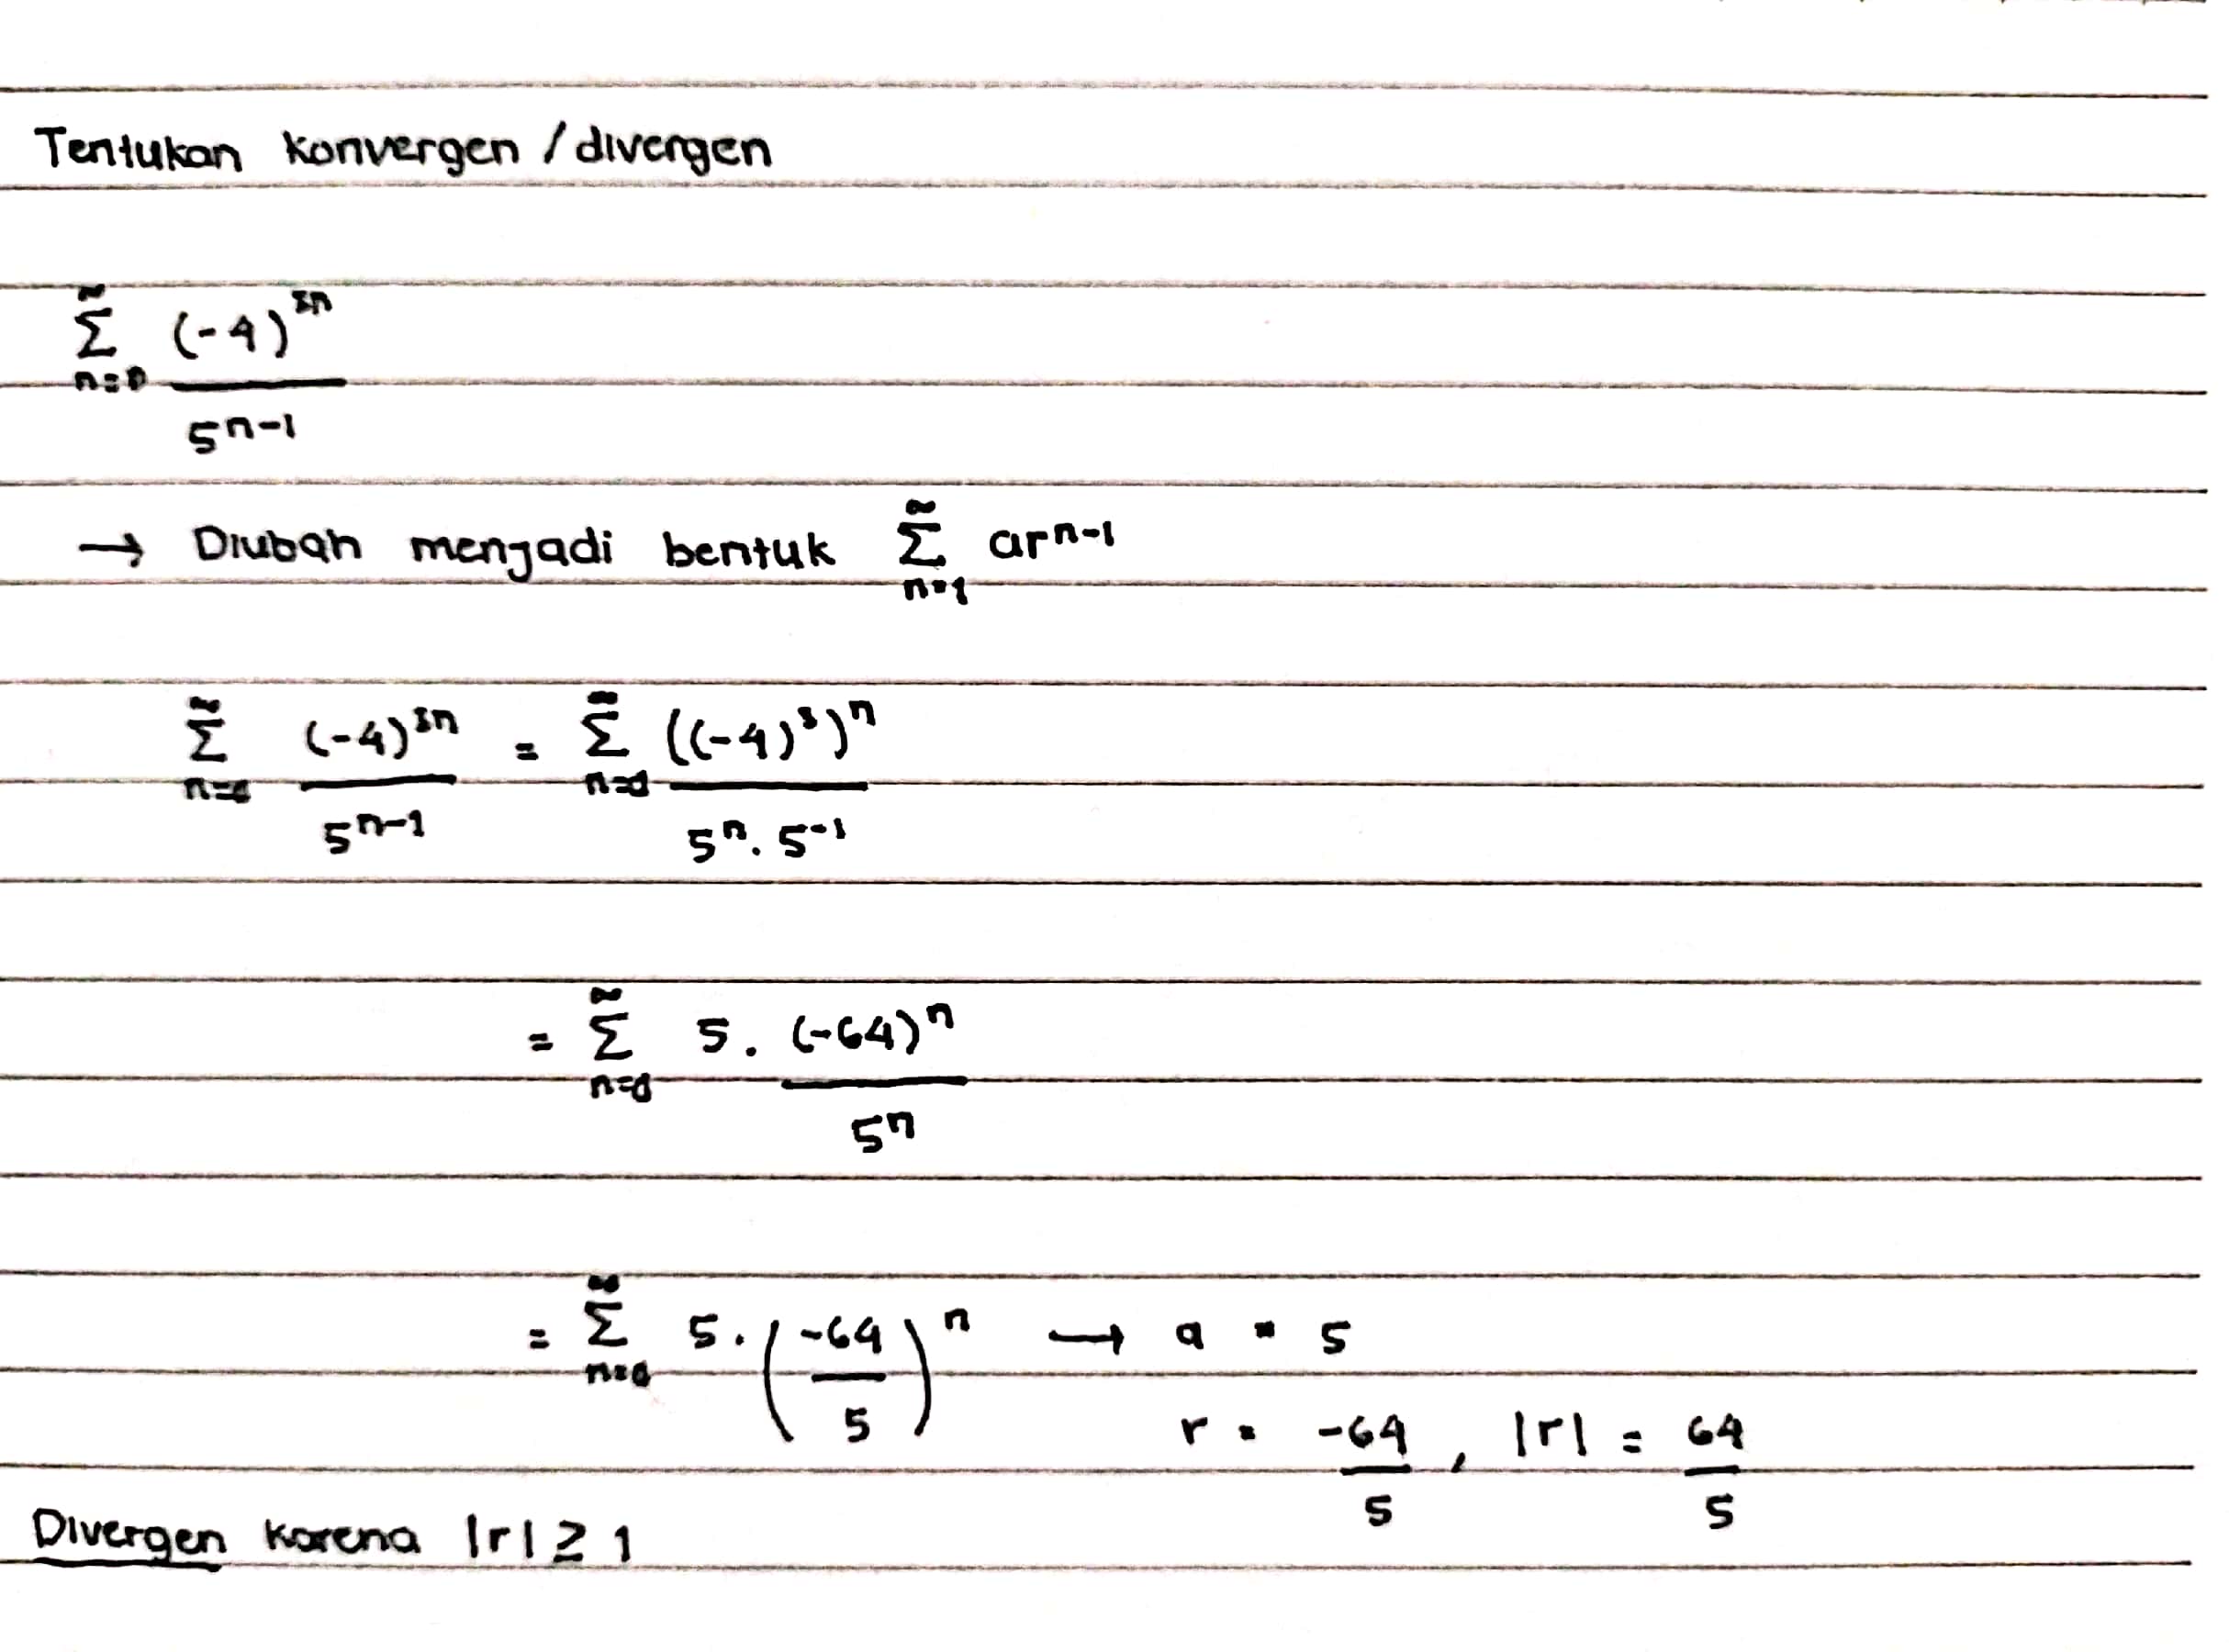 Tentukan konvergen / divergen
∞ Σ n=0 (-4)^3n / 5^n-1
→ Diubah menjadi bentuk ∞ Σ n=1 ar^n-1
∞ Σ n=0 (-4)^3n / 5^n-1 = ∞ Σ n=0 ((-4)^3)^n / 5^n . 5^-1
= ∞ Σ n=0 5 . (-64)^n / 5^n
= ∞ Σ n=0 5 . (-64 / 5)^n → a = 5
r = -64 / 5 , |r| = 64 / 5
Divergen karena |r| ≥ 1